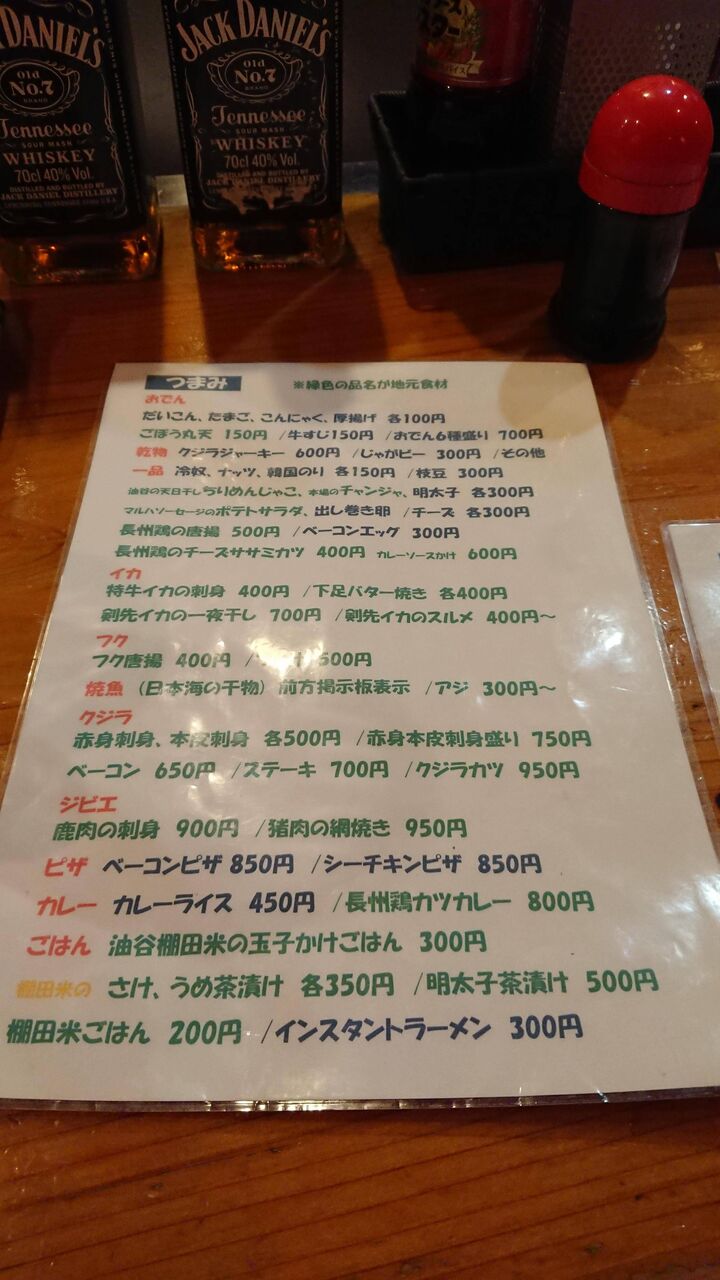 JACK DANIEL'S
Old
No.7
BRAND
Tennessee
SOUR MASH
WHISKEY
70cl 40% Vol.
DISTILLED AND BOTTLED BY
JACK DANIEL DISTILLERY
JACK DANIEL'S
Old
No.7
BRAND
Tennessee
SOUR MASH
WHISKEY
70cl 40% Vol.
DISTILLED AND BOTTLED BY
JACK DANIEL DISTILLERY
つまみ ※緑色の品名が地元食材
おでん
だいこん、たまご、こんにゃく、厚揚げ 各100円
ごぼう丸天 150円 /牛すじ150円 /おでん6種盛り 700円
乾物 クジラジャーキー 600円 /じゃがビー 300円 /その他
一品 冷奴、ナッツ、韓国のり 各150円 /枝豆 300円
油谷の天日干しちりめんじゃこ、本場のチャンジャ、明太子 各300円
マルハソーセージのポテトサラダ、出し巻き卵 /チーズ 各300円
長州鶏の唐揚 500円 /ベーコンエッグ 300円
長州鶏のチーズササミカツ 400円 カレーソースかけ 600円
イカ
特牛イカの刺身 400円 /下足バター焼き 各400円
剣先イカの一夜干し 700円 /剣先イカのスルメ 400円～
フク
フク唐揚 400円 / 500円
焼魚 (日本海の干物) 前方掲示板表示 /アジ 300円～
クジラ
赤身刺身、本皮刺身 各500円 /赤身本皮刺身盛り 750円
ベーコン 650円 /ステーキ 700円 /クジラカツ 950円
ジビエ
鹿肉の刺身 900円 /猪肉の網焼き 950円
ピザ ベーコンピザ 850円 /シーチキンピザ 850円
カレー カレーライス 450円 /長州鶏カツカレー 800円
ごはん 油谷棚田米の玉子かけごはん 300円
棚田米の さけ、うめ茶漬け 各350円 /明太子茶漬け 500円
棚田米ごはん 200円 /インスタントラーメン 300円